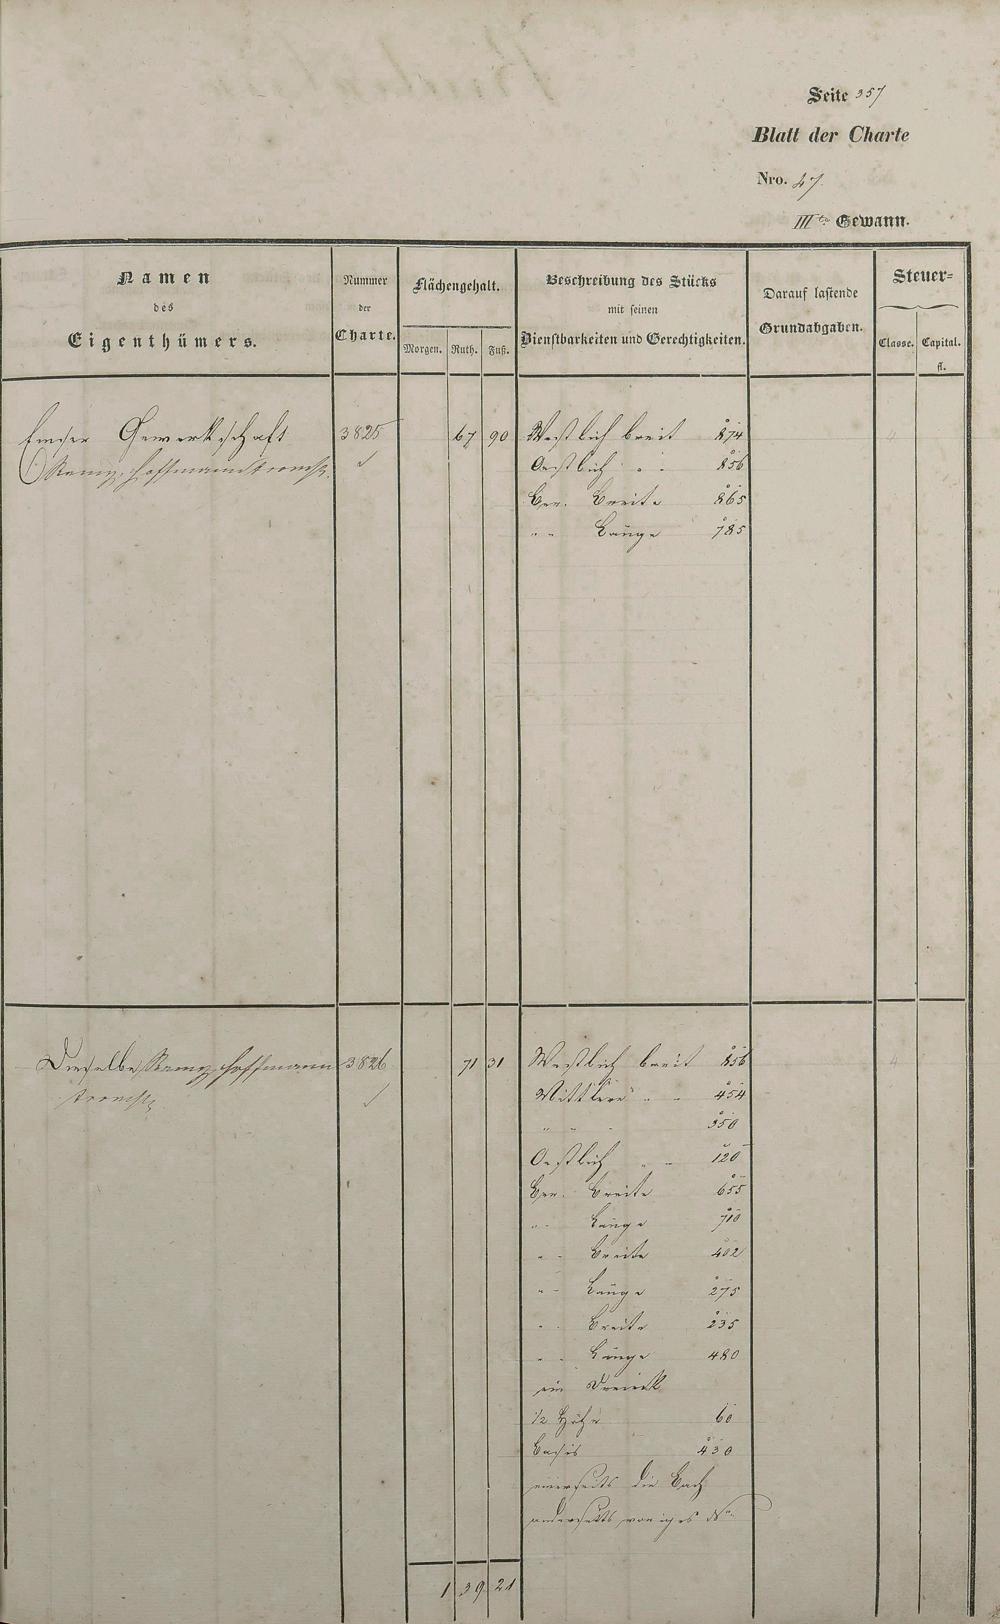 Seite 357
Blatt der Charte
Nro. 47.
IIIte Gewann.
Namen
des
Eigenthümers.
Nummer
der
Charte.
Flächengehalt.
Morgen. Ruth. Fuß.
Beschreibung des Stücks
mit seinen
Dienstbarkeiten und Gerechtigkeiten.
Darauf lastende
Grundabgaben.
Steuer-
Classe. Capital.
fl.
Emser Gewerkschaft 3825 67 90 Westlich breit 874
Remy, Hoffmann Oestlich " " 856
Ber. Breite 865
" " Länge 785
Dieselbe Remy Hoffmann 3826 71 31 Westlich breit 856
Mittlere " " 454
" " " 350
Oestlich " " 120
Ber. Breite 655
" " Länge 710
" " Breite 402
" " Länge 275
" " Breite 235
" " Länge 480
ein Dreieck
1/2 Höhe 60
Basis 430
einerseits die Bach
anderseits voriges No
1 39 21